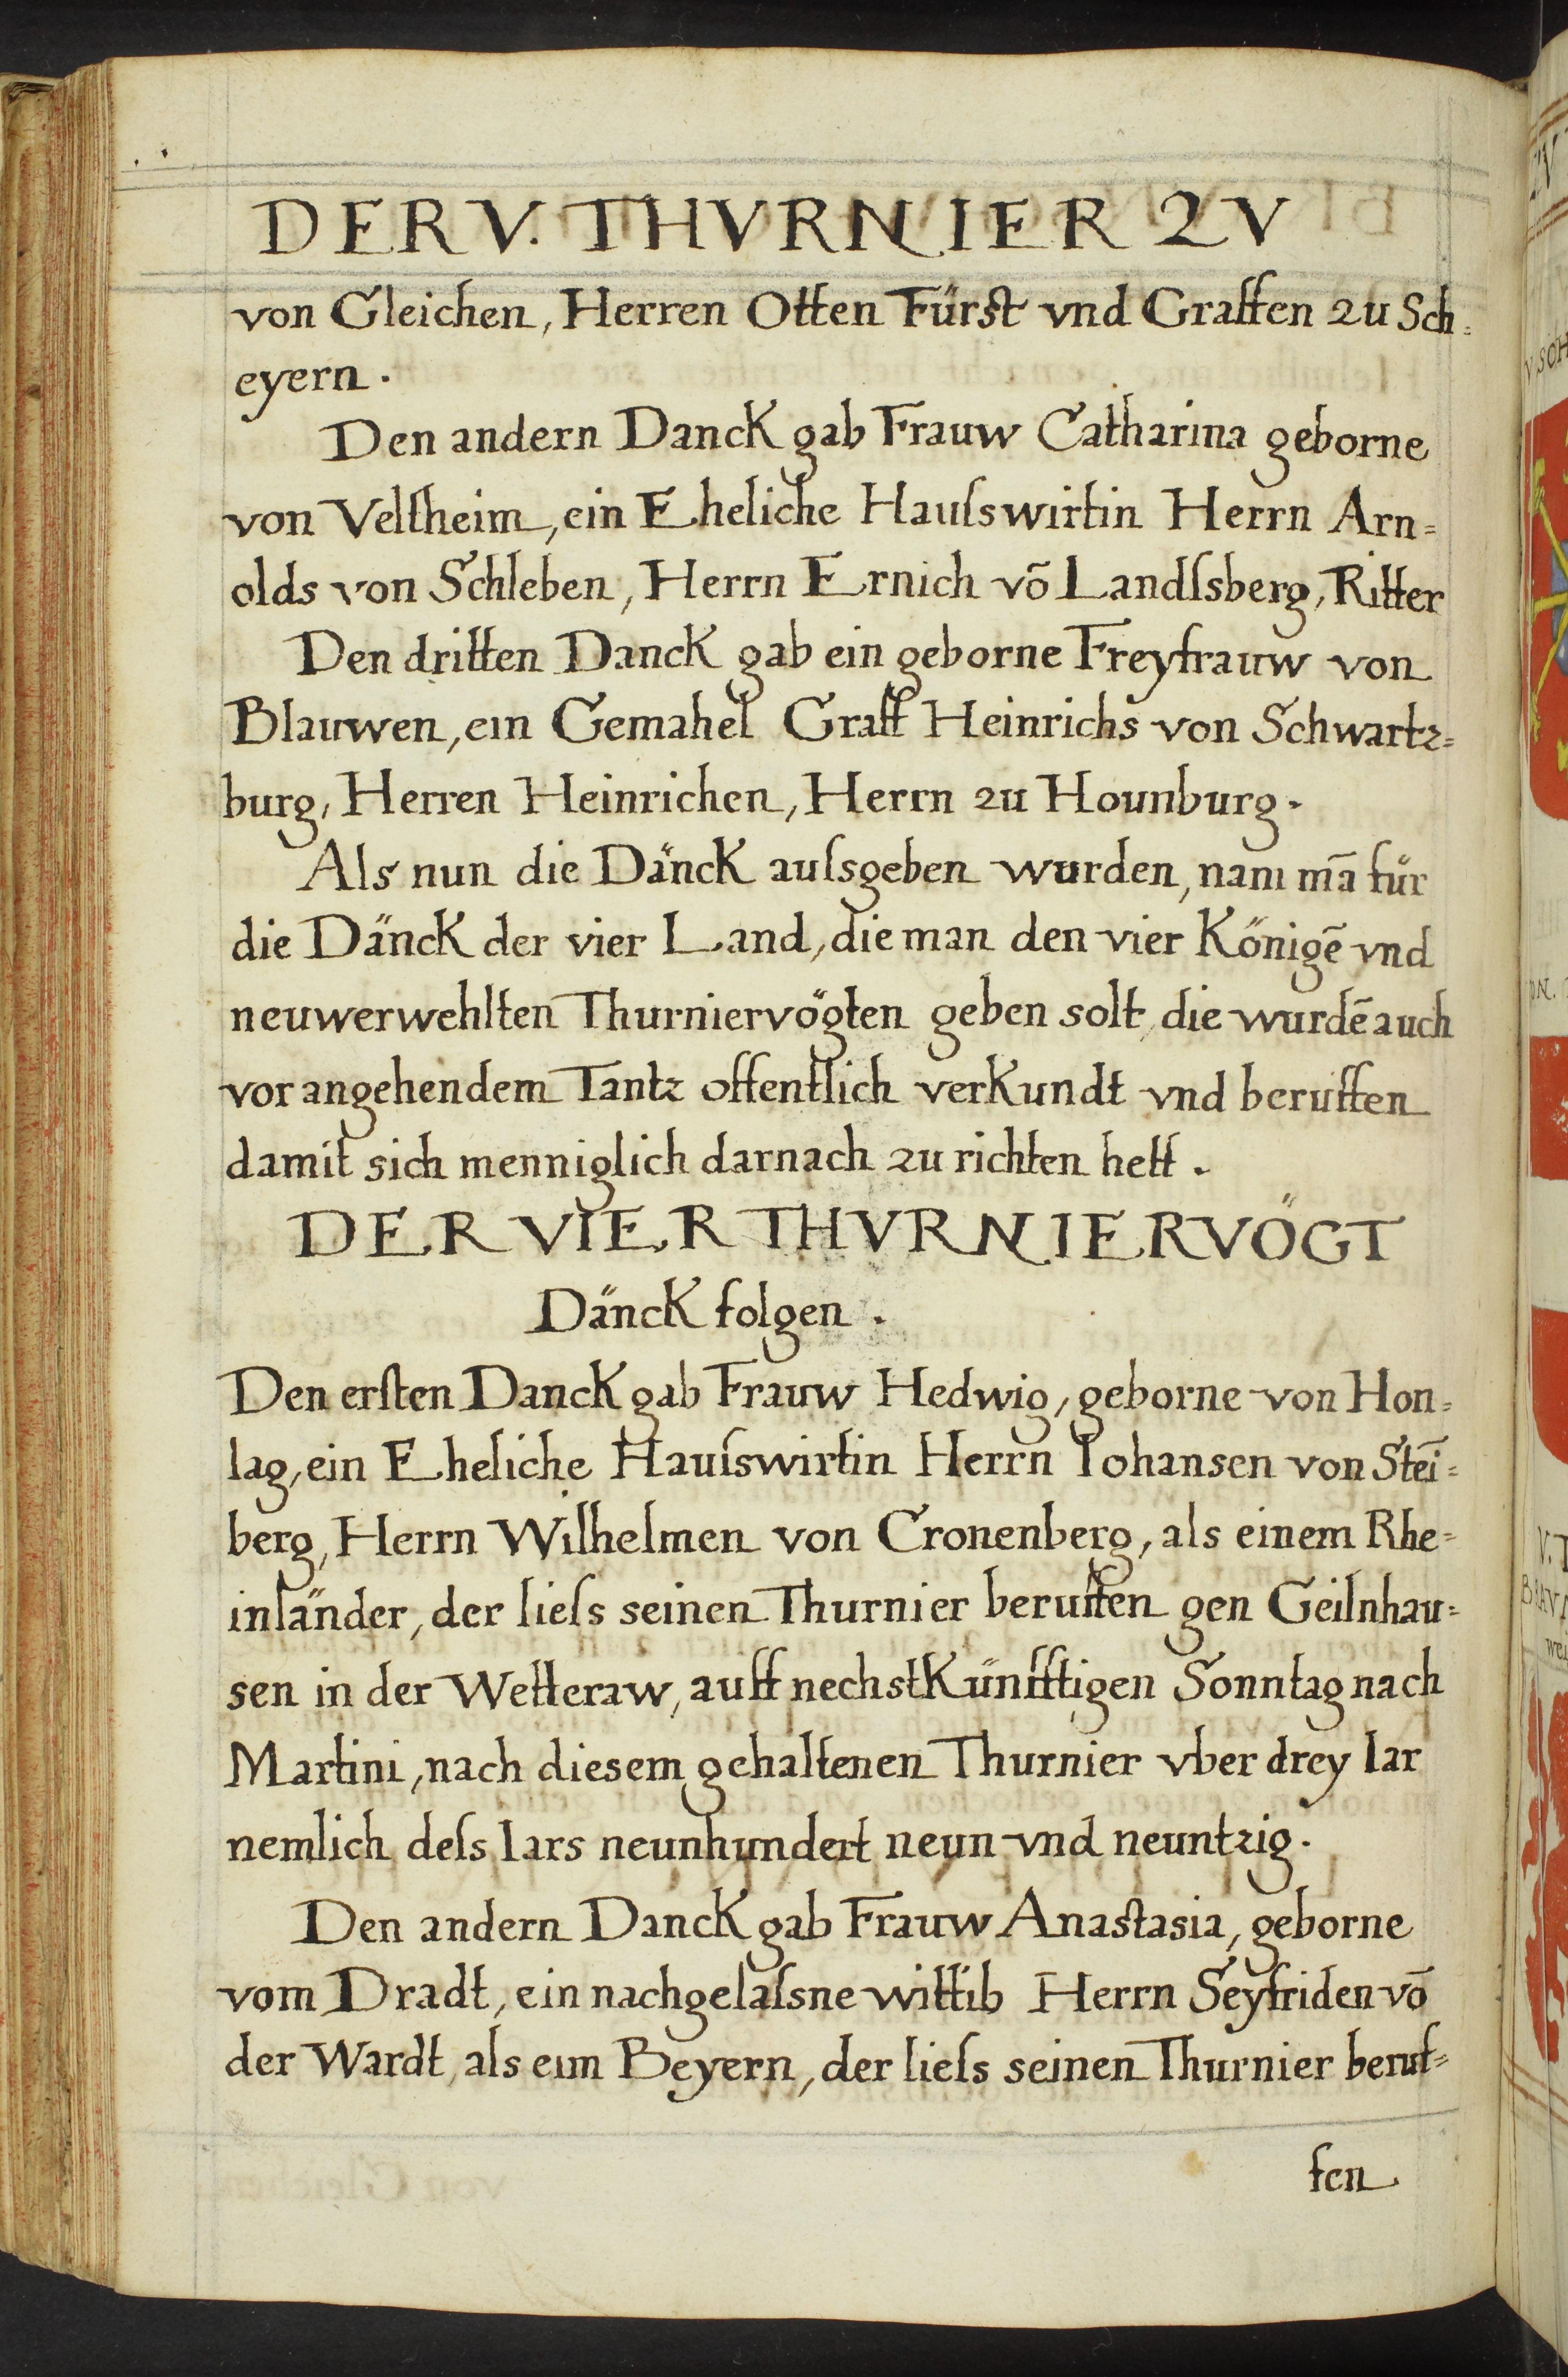 DER V. THVRNIER ZV
von Gleichen, Herren Otten Fürst vnd Graffen zu Sch=
eyern.
Den andern Danck gab Frauw Catharina geborne
von Veltheim, ein Eheliche Hauſswirtin Herrn Arn=
olds von Schleben, Herrn Ernich vō Landſsberg, Ritter
Den dritten Danck gab ein geborne Freyfrauw von
Blauwen, ein Gemahel Graff Heinrichs von Schwartz=
burg, Herren Heinrichen, Herrn zu Hounburg.
Als nun die Dänck auſsgeben wurden, nam mā für
die Dänck der vier Land, die man den vier Königē vnd
neuwerwehlten Thurniervögten geben solt, die wurdē auch
vor angehendem Tantz offentlich verkundt vnd beruffen
damit sich menniglich darnach zu richten hett.
DER VIER THVRNIERVÖGT
Dänck folgen.
Den erſten Danck gab Frauw Hedwig, geborne von Hon=
lag, ein Eheliche Hauſswirtin Herrn Iohansen von Stēi=
berg, Herrn Wilhelmen von Cronenberg, als einem Rhe=
inländer, der lieſs seinen Thurnier beruffen gen Geilnhau=
sen in der Wetteraw, auff nechstkünfftigen Sonntag nach
Martini, nach diesem gehaltenen Thurnier vber drey Iar
nemlich deſs Iars neunhundert neun vnd neuntzig.
Den andern Danck gab Frauw Anastasia, geborne
vom Dradt, ein nachgelaſsne wittib Herrn Seyfriden vō
der Wardt, als eim Beyern, der lieſs seinen Thurnier beruf=
fen